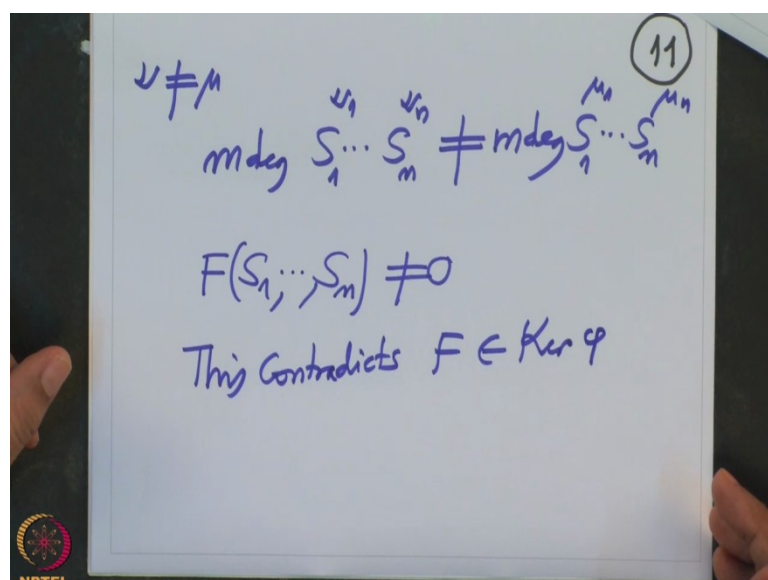 11
ν ≠ μ
mdeg S₁^ν₁ ⋯ Sₙ^νₙ ≠ mdeg S₁^μ₁ ⋯ Sₙ^μₙ
F(S₁, ⋯, Sₙ) ≠ 0
This Contradicts F ∈ Ker φ
NPTEL